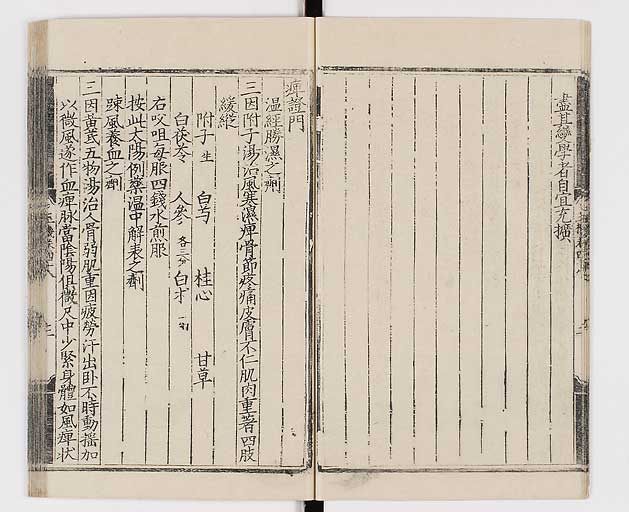 盡其變學者自宜充擴
痺證門
温經勝濕之劑
三因附子湯治風寒濕痺骨節疼痛皮膚不仁肌肉重著四肢
緩縱
附子生 白芍 桂心 甘草
白茯苓 人參各三分 白朮一兩
右㕮咀每服四錢水煎服
按此太陽例藥温中解表之劑
踈風養血之劑
三因黄茋五物湯治人骨弱肌重因疲勞汗出卧不時動揺加
以微風遂作血痺脉當陰陽俱微尺中少緊身體如風痺状